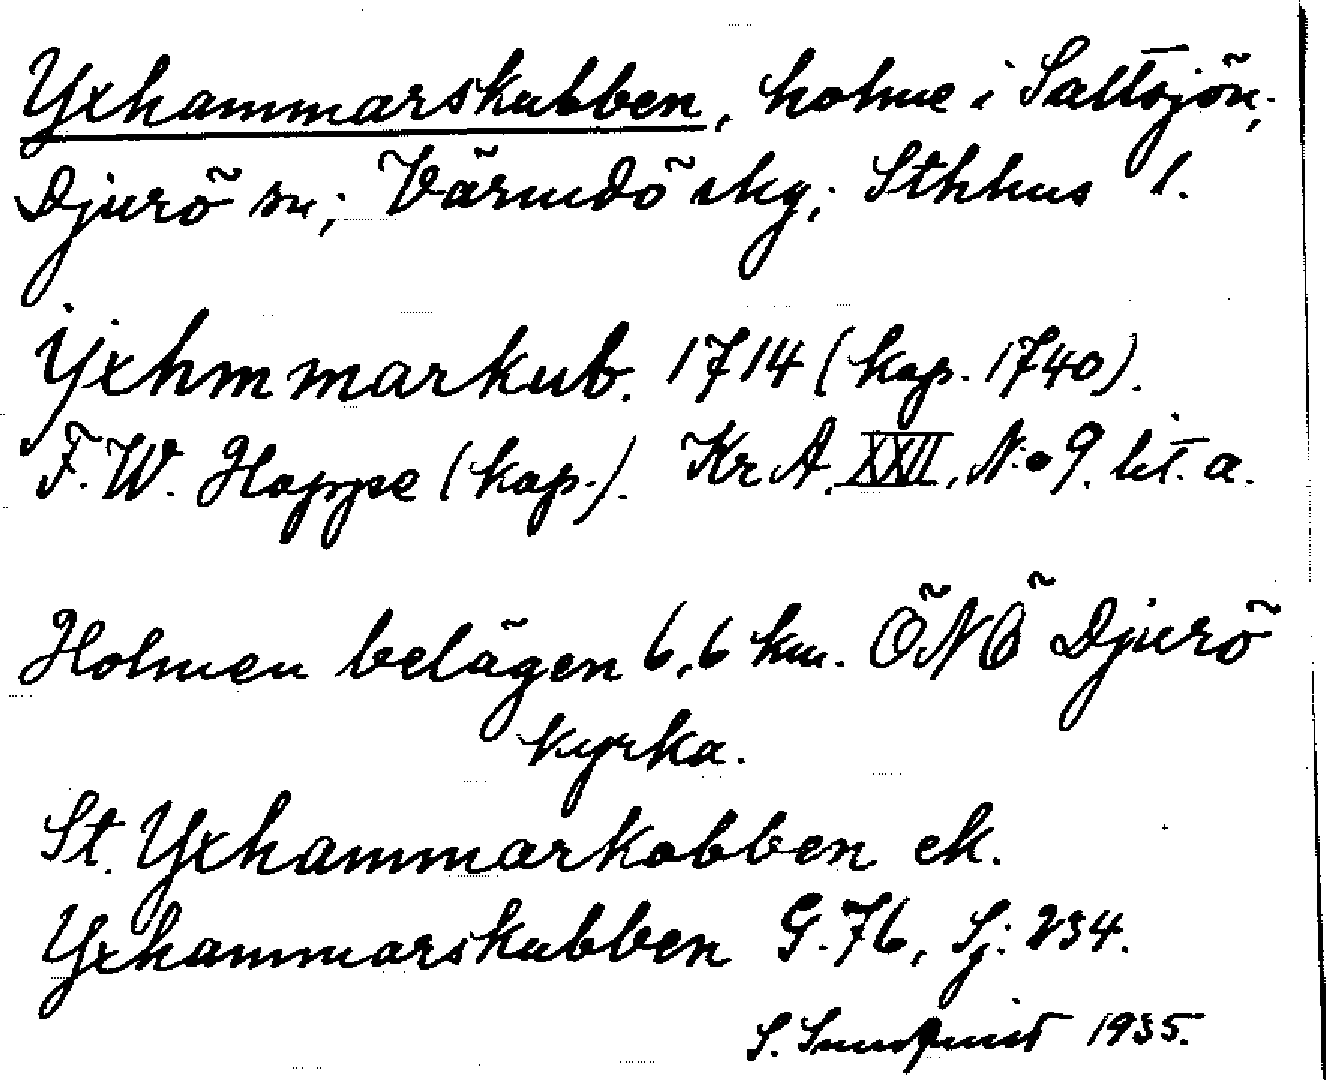 Yxhammarskubben, holme i Saltsjön,
Djurö sn; Värmdö skg; Sthlms l.
Yxhmmarkub. 1714 (kop. 1740).
F. W. Hoppe (kop.). Kr A. XXII. No 9. lit. a.
Holmen belägen 6,6 km. ÖNÖ Djurö
kyrka.
St. Yxhammarkobben ek.
Yxhammarskubben G. 76, Sj: 234.
S. 1935.